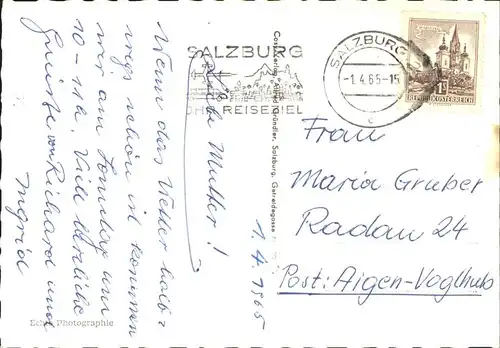 Liebe Mutter!
Wenn das Wetter halb-
wegs schön ist kommen
wir am Sonntag um
10-11h. Viele herzliche
Grüsse von Richard und
Ingrid
1.4.1965
SALZBURG
IHR REISEZIEL
SALZBURG
-1.4.65-15
c
REPUBLIK ÖSTERREICH
Frau
Maria Gruber
Radau 24
Post: Aigen-Voglhub
Cosy-Verlag Alfred Gründler, Salzburg, Getreidegasse
Echte Photographie